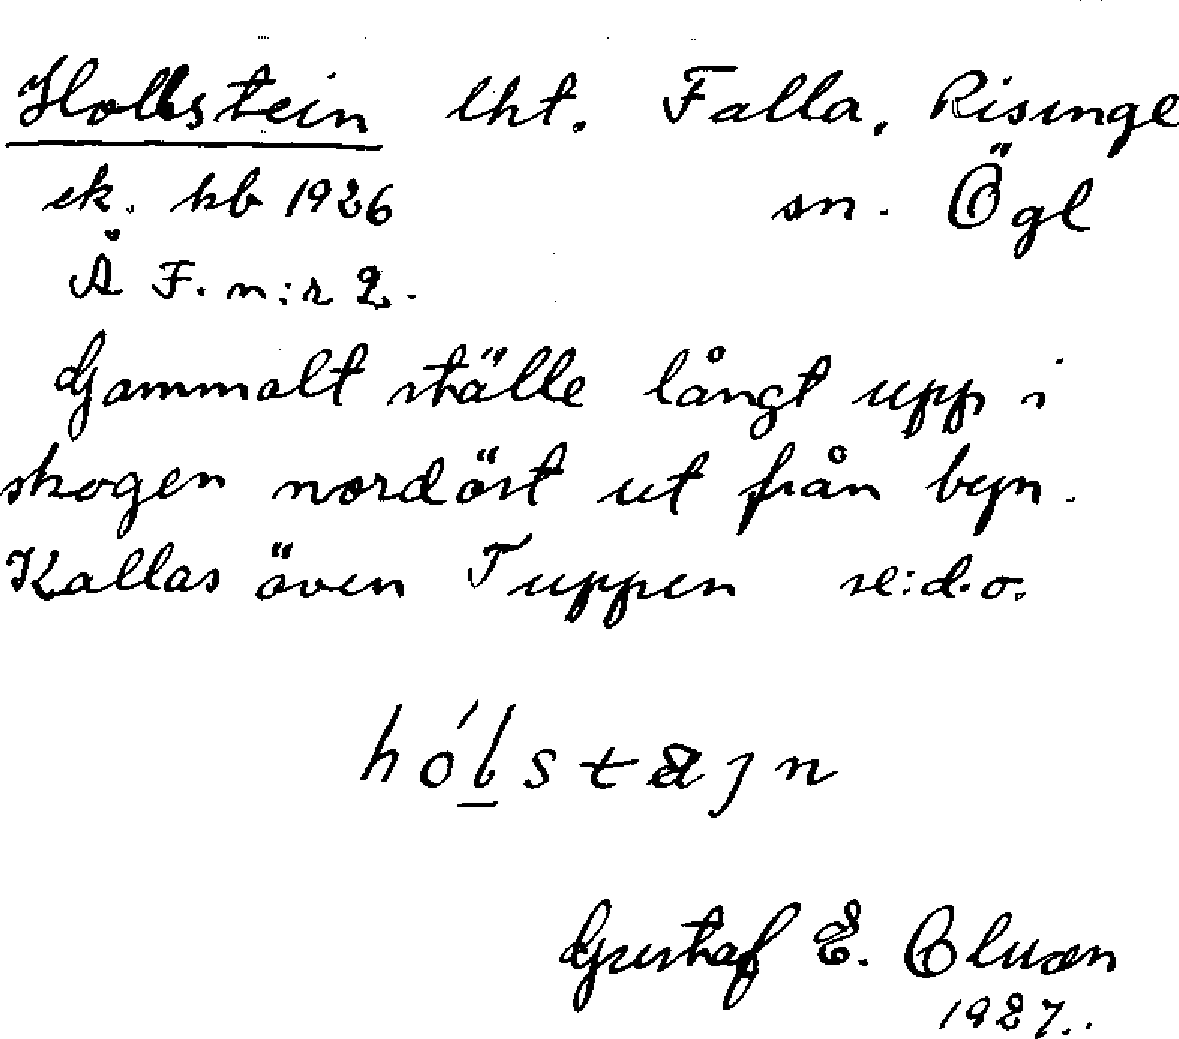 Hollstein lht. Falla, Risinge
ek. kb 1926 sn. Ögl
Ä F. n:r 2.
Gammalt ställe långt upp i
skogen nordöst ut från byn.
Kallas även Tuppen se:d.o.
hólstajn
Gustaf E.
1927.